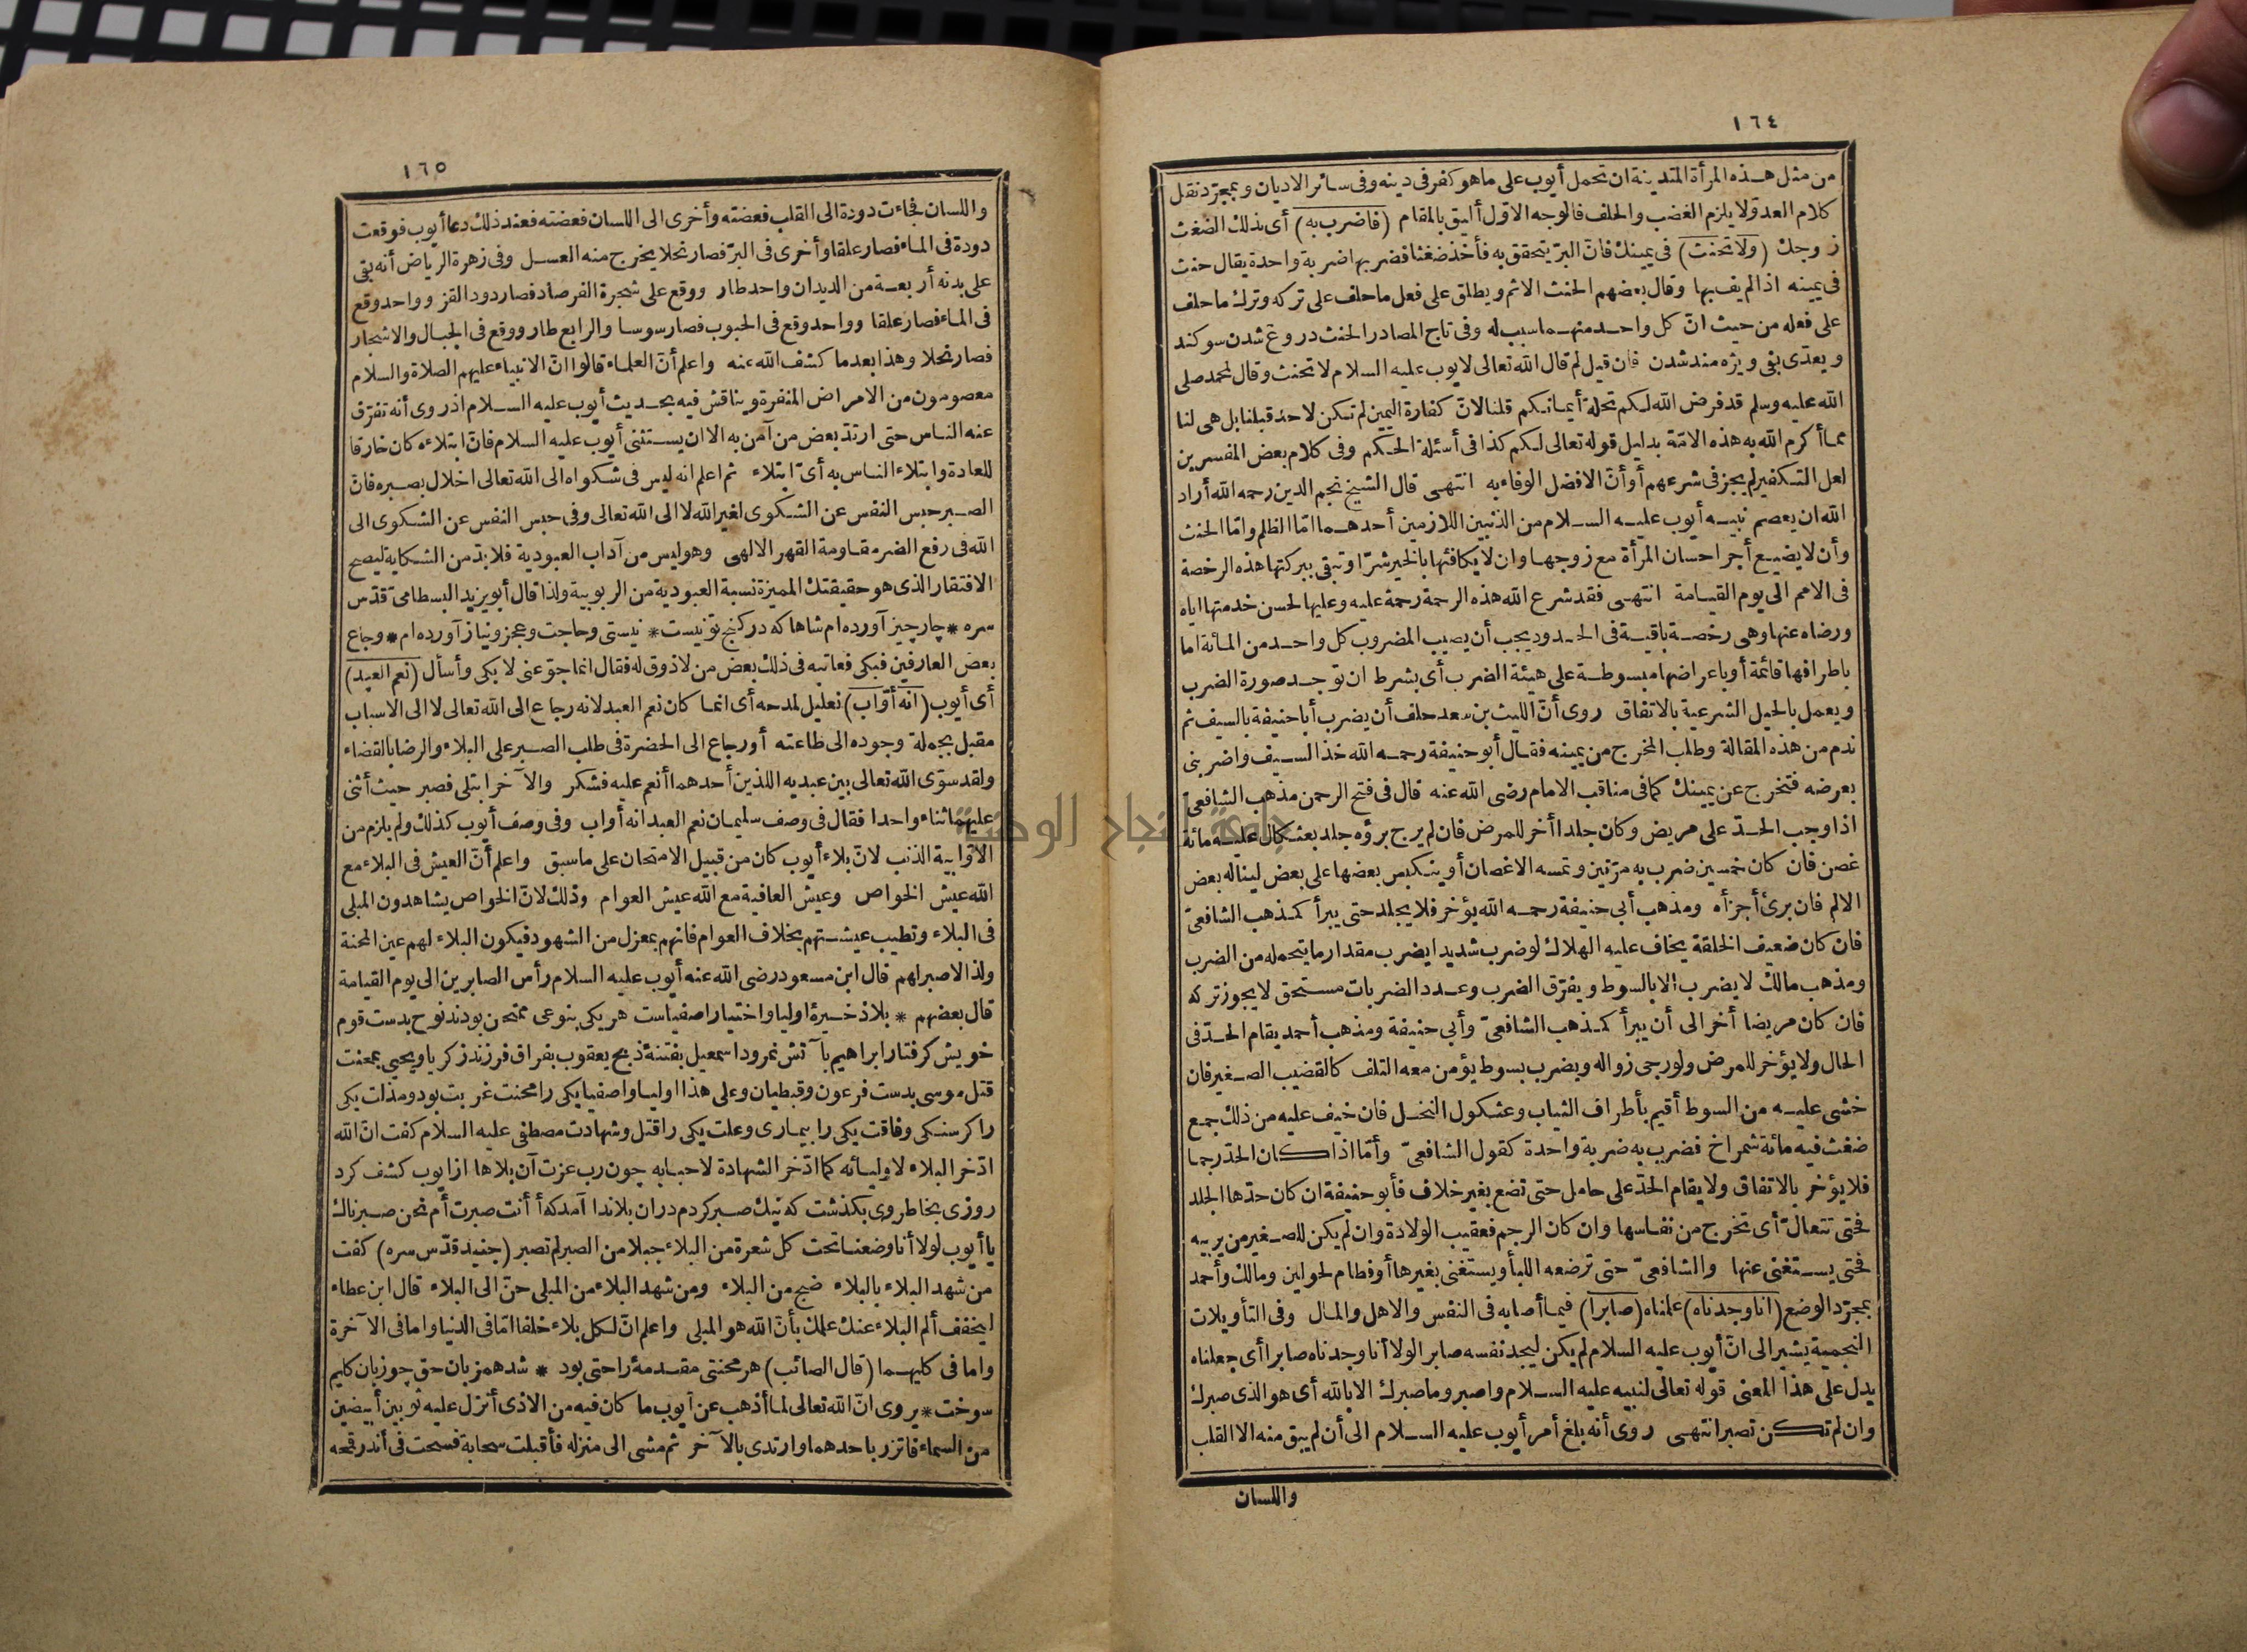 ١٦٤
من مثل هذه المرأة المتدينة ان تحمل أيوب على ما هو كفر فى دينه وفى سائر الاديان وبمجرّد نقل
كلام العدوّ لا يلزم الغضب والحلف فالوجه الاوّل أليق بالمقام (فاضرب به) أى بذلك الضغث
زوجك (ولا تحنث) فى يمينك فانّ البرّ يتحقق به فأخذ ضغثا فضربها ضربة واحدة يقال حنث
فى يمينه اذا لم يف بها وقال بعضهم الحنث الاثم ويطلق على فعل ما حلف على تركه وترك ما حلف
على فعله من حيث انّ كل واحد منهما سبب له وفى تاج المصادر الحنث دروغ شدن سوكند
ويعدّى بفى وبزه مند شدن فان قيل لم قال الله تعالى لايوب عليه السلام لا تحنث وقال لمحمد صلى
الله عليه وسلم قد فرض الله لكم تحلة أيمانكم قلنا لانّ كفارة اليمين لم تكن لاحد قبلنا بل هى لنا
مما أكرم الله به هذه الامّة بدليل قوله تعالى لكم كذا فى أسئلة الحكم وفى كلام بعض المفسرين
لعل التكفير لم يجز فى شرعهم أو أنّ الافضل الوفاء به انتهى قال الشيخ نجم الدين رحمه الله أراد
الله ان يعصم نبيه أيوب عليه السلام من الذنبين اللازمين أحدهما امّا الظلم وامّا الحنث
وأن لا يضيع أجر احسان المرأة مع زوجها وان لا يكافئها بالخير شرّا وتبقى ببركتها هذه الرخصة
فى الامم الى يوم القيامة انتهى فقد شرع الله هذه الرحمة رحمة عليه وعليها لحسن خدمتها اياه
ورضاه عنها وهى رخصة باقية فى الحدود يجب أن يصيب المضروب كل واحد من المائة اما
باطرافها قائمة أو باعراضها مبسوطة على هيئة الضرب أى بشرط ان توجد صورة الضرب
ويعمل بالحيل الشرعية بالاتفاق روى أنّ الليث بن سعد حلف أن يضرب أبا حنيفة بالسيف ثم
ندم من هذه المقالة وطلب المخرج من يمينه فقال أبو حنيفة رحمه الله خذ السيف واضربنى
بعرضه فتخرج عن يمينك كما فى مناقب الامام رضى الله عنه قال فى فتح الرحمن مذهب الشافعىّ
اذا وجب الحدّ على مريض وكان جلدا أخر للمرض فان لم يرج برؤه جلد بعثكال عليه مائة
غصن فان كان خمسين ضرب به مرّتين وتمسه الاغصان أو ينكبس بعضها على بعض ليناله بعض
الالم فان برئ أجزأه ومذهب أبى حنيفة رحمه الله يؤخر فلا يجلد حتى يبرأ كمذهب الشافعىّ
فان كان ضعيف الخلقة يخاف عليه الهلاك لو ضرب شديدا يضرب مقدار ما يتحمله من الضرب
ومذهب مالك لا يضرب الا بالسوط ويفرّق الضرب وعدد الضربات مستحق لا يجوز تركه
فان كان مريضا أخر الى أن يبرأ كمذهب الشافعىّ وأبى حنيفة ومذهب أحمد يقام الحدّ فى
الحال ولا يؤخر للمرض ولو رجى زواله ويضرب بسوط يؤمن معه التلف كالقضيب الصغير فان
خشى عليه من السوط أقيم بأطراف الثياب وعثكول النخل فان خيف عليه من ذلك جمع
ضغث فيه مائة شمراخ فضرب به ضربة واحدة كقول الشافعىّ وأمّا اذا كان الحدّ رجما
فلا يؤخر بالاتفاق ولا يقام الحدّ على حامل حتى تضع بغير خلاف فأبو حنيفة ان كان حدّها الجلد
فحتى تتعالّ أى تخرج من نفاسها وان كان الرجم فعقيب الولادة وان لم يكن للصغير من يربيه
فحتى يستغنى عنها والشافعىّ حتى ترضعه اللبأ ويستغنى بغيرها أو فطام لحولين ومالك وأحمد
بمجرّد الوضع (انا وجدناه) علمناه (صابرا) فيما أصابه فى النفس والاهل والمال وفى التأويلات
النجمية يشير الى انّ أيوب عليه السلام لم يكن ليجد نفسه صابر الولا أنا وجدناه صابرا أى جعلناه
يدل على هذا المعنى قوله تعالى لنبيه عليه السلام واصبر وما صبرك الا بالله أى هو الذى صبرك
وان لم تكن تصبر انتهى روى أنه بلغ أمر أيوب عليه السلام الى أن لم يبق منه الا القلب
واللسان
١٦٥
واللسان فجاءت دودة الى القلب فعضته وأخرى الى اللسان فعضته فعند ذلك دعا أيوب فوقعت
دودة فى الماء فصار علقا وأخرى فى البرّ فصار نحلا يخرج منه العسل وفى زهرة الرياض أنه بقى
على بدنه أربعة من الديدان واحد طار ووقع على شجرة الفرصاد فصار دود القز وواحد وقع
فى الماء فصار علقا وواحد وقع فى الحبوب فصار سوسا والرابع طار ووقع فى الجبال والاشجار
فصار نحلا وهذا بعد ما كشف الله عنه واعلم أنّ العلماء قالوا انّ الانبياء عليهم الصلاة والسلام
معصومون من الامراض المنفرة ويناقش فيه بحديث أيوب عليه السلام اذ روى أنه تفرّق
عنه الناس حتى ارتدّ بعض من آمن به الا ان يستثنى أيوب عليه السلام فانّ ابتلاءه كان خارقا
للعادة وابتلاء الناس به أىّ ابتلاء ثم اعلم انه ليس فى شكواه الى الله تعالى اخلال بصبره فانّ
الصبر حبس النفس عن الشكوى لغير الله لا الى الله تعالى وفى حبس النفس عن الشكوى الى
الله فى رفع الضر مقاومة القهر الالهى وهو ليس من آداب العبودية فلا بدّ من الشكاية ليصح
الافتقار الذى هو حقيقتك المميزة نسبة العبودية من الربوبية ولذا قال أبو يزيد البسطامىّ قدّس
سره * چار چيز آورده ام شاها كه در كنج تو نيست * نيستى وحاجت وعجز ونياز آورده ام * وجاع
بعض العارفين فبكى فعاتبه فى ذلك بعض من لا ذوق له فقال انما جوّعنى لابكى وأسأل (نعم العبد)
أى أيوب (انه أوّاب) تعليل لمدحه أى انما كان نعم العبد لانه رجاع الى الله تعالى لا الى الاسباب
مقبل بجملة وجوده الى طاعته أو رجاع الى الحضرة فى طلب الصبر على البلاء والرضا بالقضاء
ولقد سوّى الله تعالى بين عبديه اللذين أحدهما أنعم عليه فشكر والآخر ابتلى فصبر حيث أثنى
عليهما ثناء واحدا فقال فى وصف سليمان نعم العبد انه أواب وفى وصف أيوب كذلك ولم يلزم من
الاوّابية الذنب لانّ بلاء أيوب كان من قبيل الامتحان على ما سبق واعلم أنّ العيش فى البلاء مع
الله عيش الخواص وعيش العافية مع الله عيش العوام وذلك لانّ الخواص يشاهدون المبلى
فى البلاء وتطيب عيشتهم بخلاف العوام فانهم بمعزل من الشهود فيكون البلاء لهم عين المحنة
ولذا لا صبر لهم قال ابن مسعود رضى الله عنه أيوب عليه السلام رأس الصابرين الى يوم القيامة
قال بعضهم * بلا ذخيرۀ اوليا واختيار اصفياست هر يكى بنوعى ممتحن بودند نوح بدست قوم
خويش كرفتار ابراهيم بآتش نمرود اسمعيل بفتنۀ ذبح يعقوب بفراق فرزند زكريا ويحيى بمحنت
قتل موسى بدست فرعون وقبطيان وعلى هذا اوليا واصفيا يكى را محنت غربت بود ومذلت يكى
را كرسنكى وفاقت يكى را بيمارى وعلت يكى را قتل وشهادت مصطفى عليه السلام كفت انّ الله
ادّخر البلاء لاوليائه كما ادّخر الشهادة لاحبابه چون رب عزت آن بلاها از ايوب كشف كرد
روزى بخاطر وى بكذشت كه نيك صبر كردم دران بلا ندا آمد كه أ أنت صبرت أم نحن صبرناك
يا أيوب لولا أنا وضعنا تحت كل شعرة من البلاء جبلا من الصبر لم تصبر (جنيد قدّس سره) كفت
من شهد البلاء بالبلاء ضج من البلاء ومن شهد البلاء من المبلى حنّ الى البلاء قال ابن عطاء
ليخفف ألم البلاء عنك علمك بأنّ الله هو المبلى واعلم انّ لكل بلاء خلفا امّا فى الدنيا واما فى الآخرة
واما فى كليهما (قال الصائب) هر محنتى مقدمۀ راحتى بود * شد همزبان حق چو زبان كليم
سوخت * يروى انّ الله تعالى لما أذهب عن أيوب ما كان فيه من الاذى أنزل عليه ثوبين أبيضين
من السماء فاتزر باحدهما وارتدى بالآخر ثم مشى الى منزله فأقبلت سحابة فسحت فى أندر قمحه
جامعة النجاح الوطنية